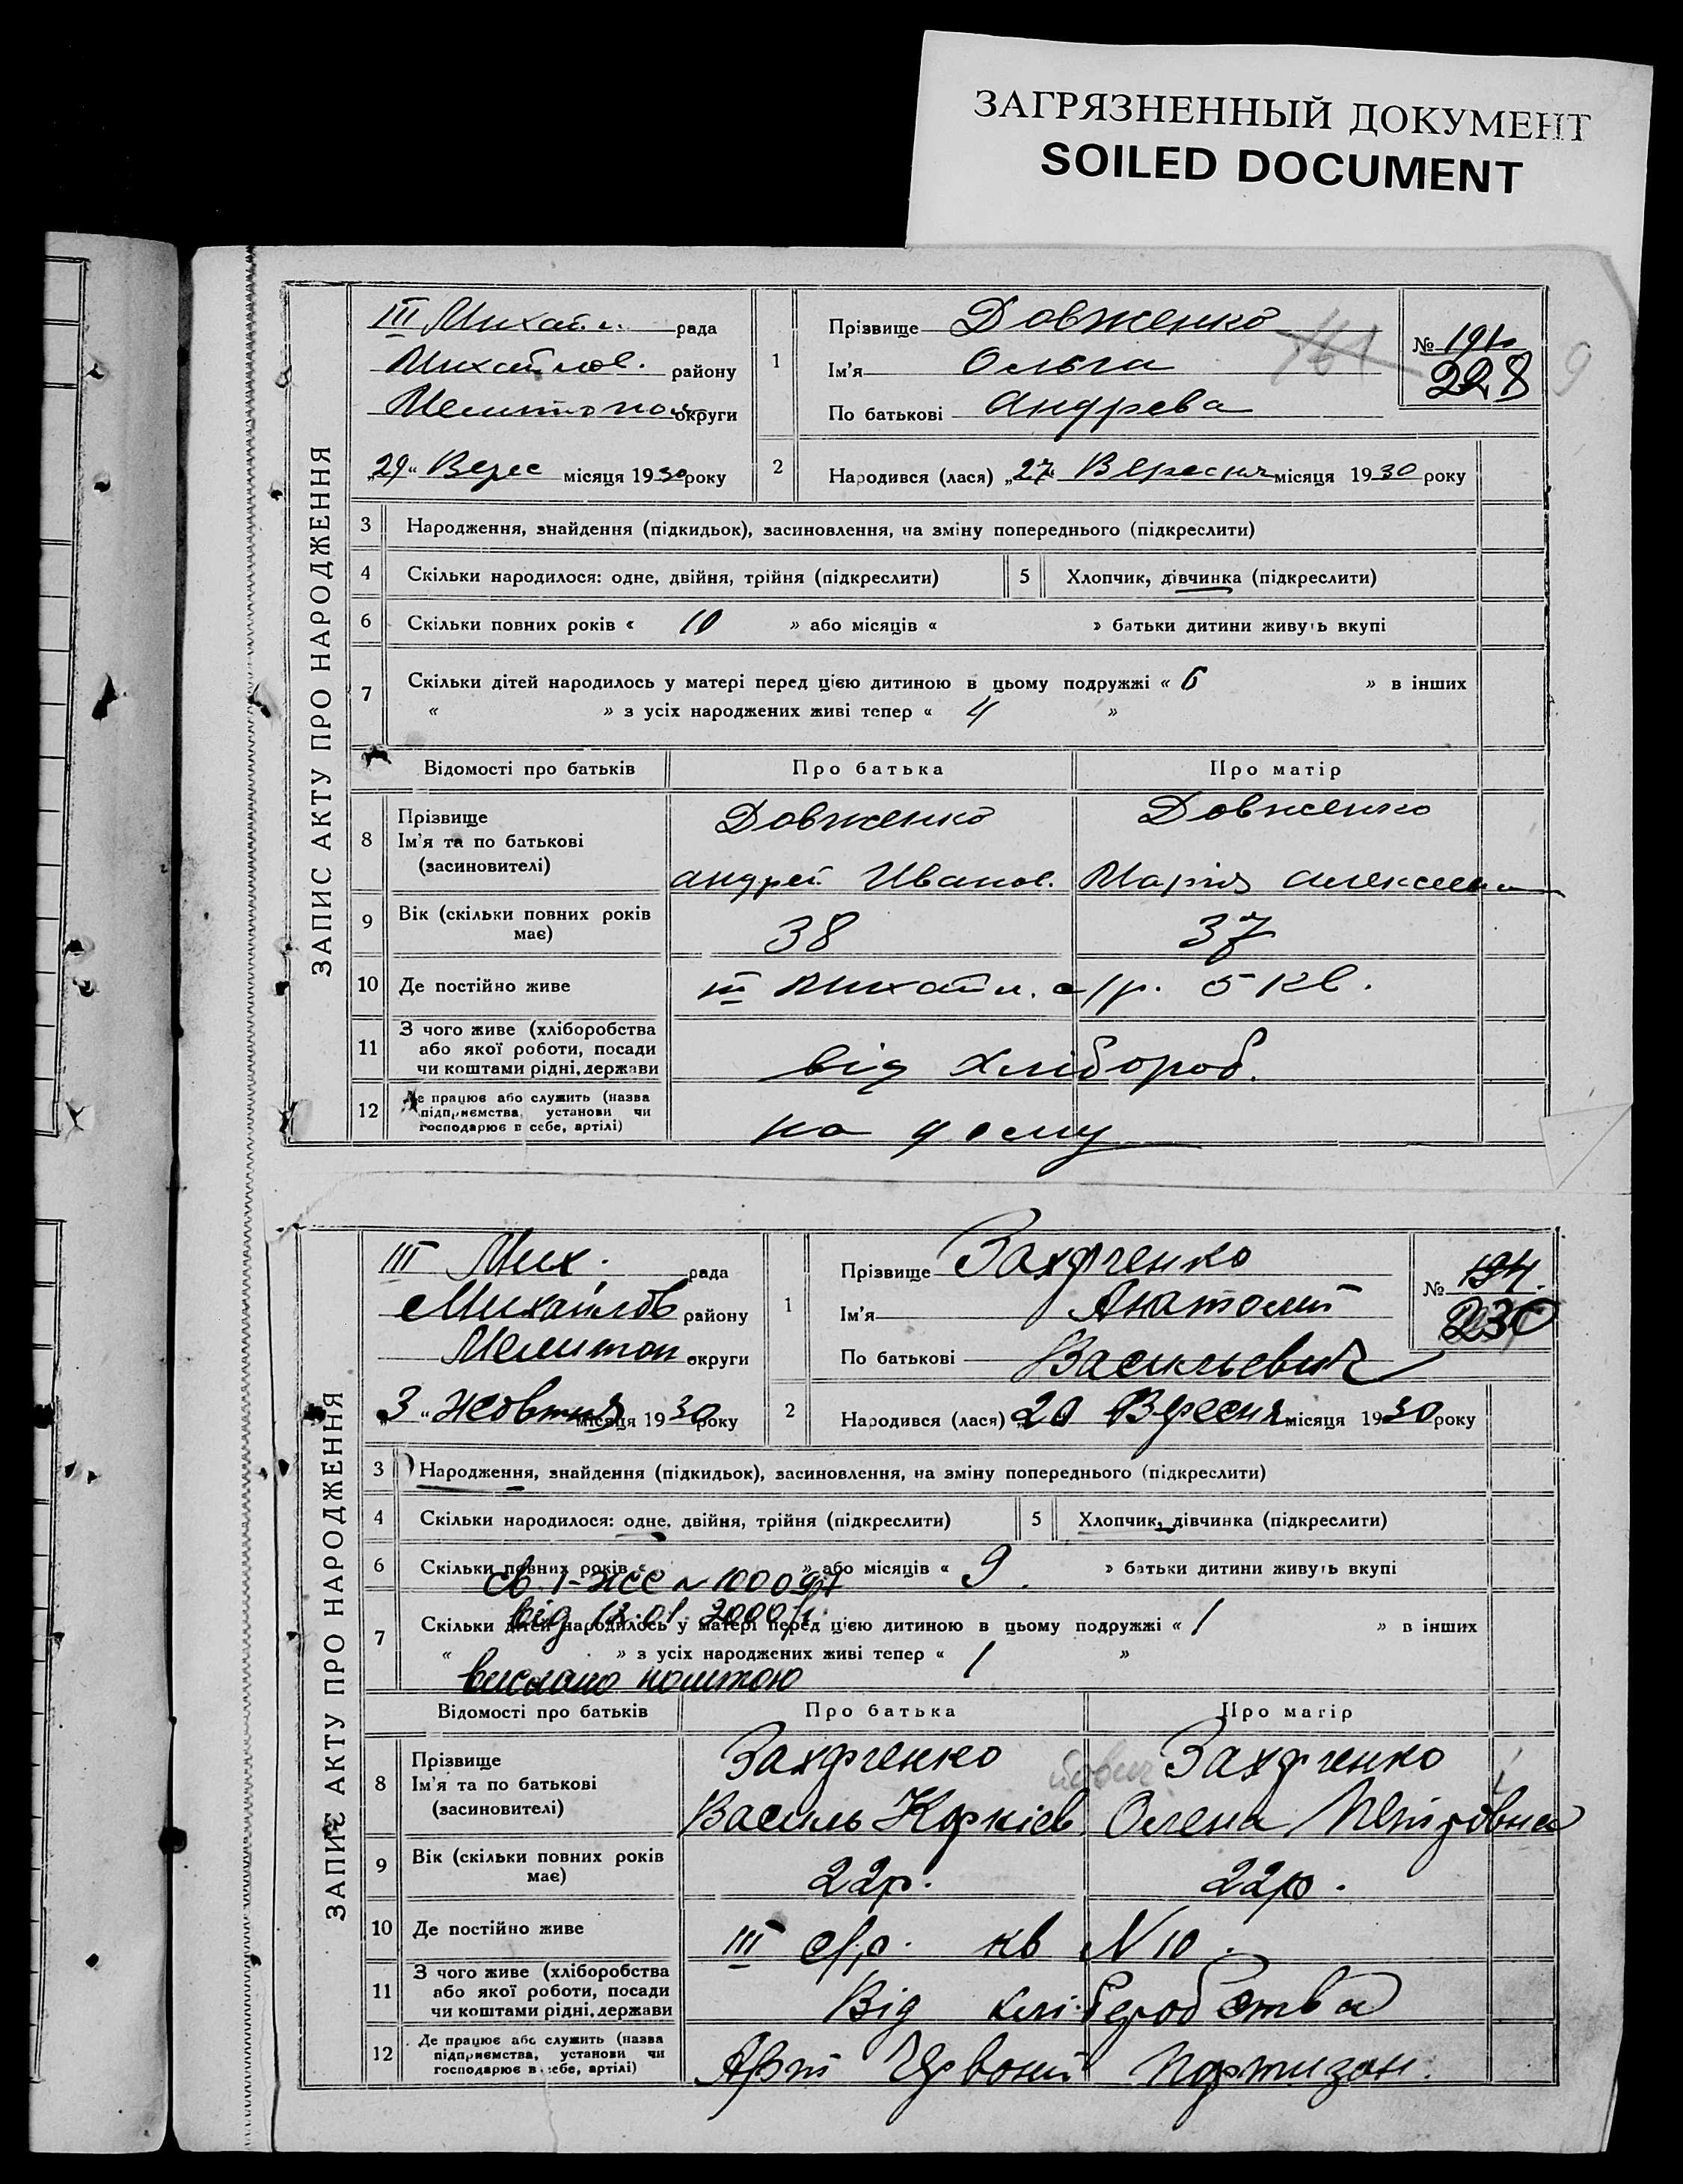 ЗАГРЯЗНЕННЫЙ ДОКУМЕНТ
SOILED DOCUMENT
ЗАПИС АКТУ ПРО НАРОДЖЕННЯ
III Михайл. рада
Михайлов. району
Мелитопол округи
„29" Верес місяця 1930 року
1 Прізвище Довженко
Ім'я Ольга
По батькові Андрева
161
№ 191
228
9
2 Народився (лася) „27" Вересня місяця 1930 року
3 Народження, знайдення (підкидьок), засиновлення, на зміну попереднього (підкреслити)
4 Скільки народилося: одне, двійня, трійня (підкреслити) 5 Хлопчик, дівчинка (підкреслити)
6 Скільки повних років « 10 » або місяців « » батьки дитини живуть вкупі
7 Скільки дітей народилось у матері перед цією дитиною в цьому подружжі « 6 » в інших
« » з усіх народжених живі тепер « 4 »
Відомості про батьків Про батька Про матір
8 Прізвище
Ім'я та по батькові
(засиновителі)
Довженко Довженко
Андрей Иванов. Марія Алексеевна
9 Вік (скільки повних років має) 38 37
10 Де постійно живе III Михайл. с/р. 5 кв.
11 З чого живе (хліборобства
або якої роботи, посади
чи коштами рідні, держави
від хлібороб.
12 Де працює або служить (назва
підприємства, установи чи
господарює в себе, артілі)
на дому
ЗАПИС АКТУ ПРО НАРОДЖЕННЯ
III Мих. рада
Михайлов району
Мелитоп округи
„3" жовтня місяця 1930 року
1 Прізвище Захарченко
Ім'я Анатолий
По батькові Васильевич
№ 194.
230
2 Народився (лася) „20 Вересня місяця 1930 року
3 Народження, знайдення (підкидьок), засиновлення, на зміну попереднього (підкреслити)
4 Скільки народилося: одне, двійня, трійня (підкреслити) 5 Хлопчик, дівчинка (підкреслити)
6 Скільки повних років « » або місяців « 9. » батьки дитини живуть вкупі
св. 1-ЖС №
від 12.01.2000 р.
7 Скільки дітей народилось у матері перед цією дитиною в цьому подружжі « 1 » в інших
« » з усіх народжених живі тепер « 1 »
вислано поштою
Відомості про батьків Про батька Про матір
8 Прізвище
Ім'я та по батькові
(засиновителі)
Захарченко Захарченко
Василь Карпієв Олена Петровна
9 Вік (скільки повних років має) 22р. 22р.
10 Де постійно живе III с/р. кв N 10.
11 З чого живе (хліборобства
або якої роботи, посади
чи коштами рідні, держави
Від хліборобства
12 Де працює або служить (назва
підприємства, установи чи
господарює в себе, артілі)
Арт Червоний Партизан.